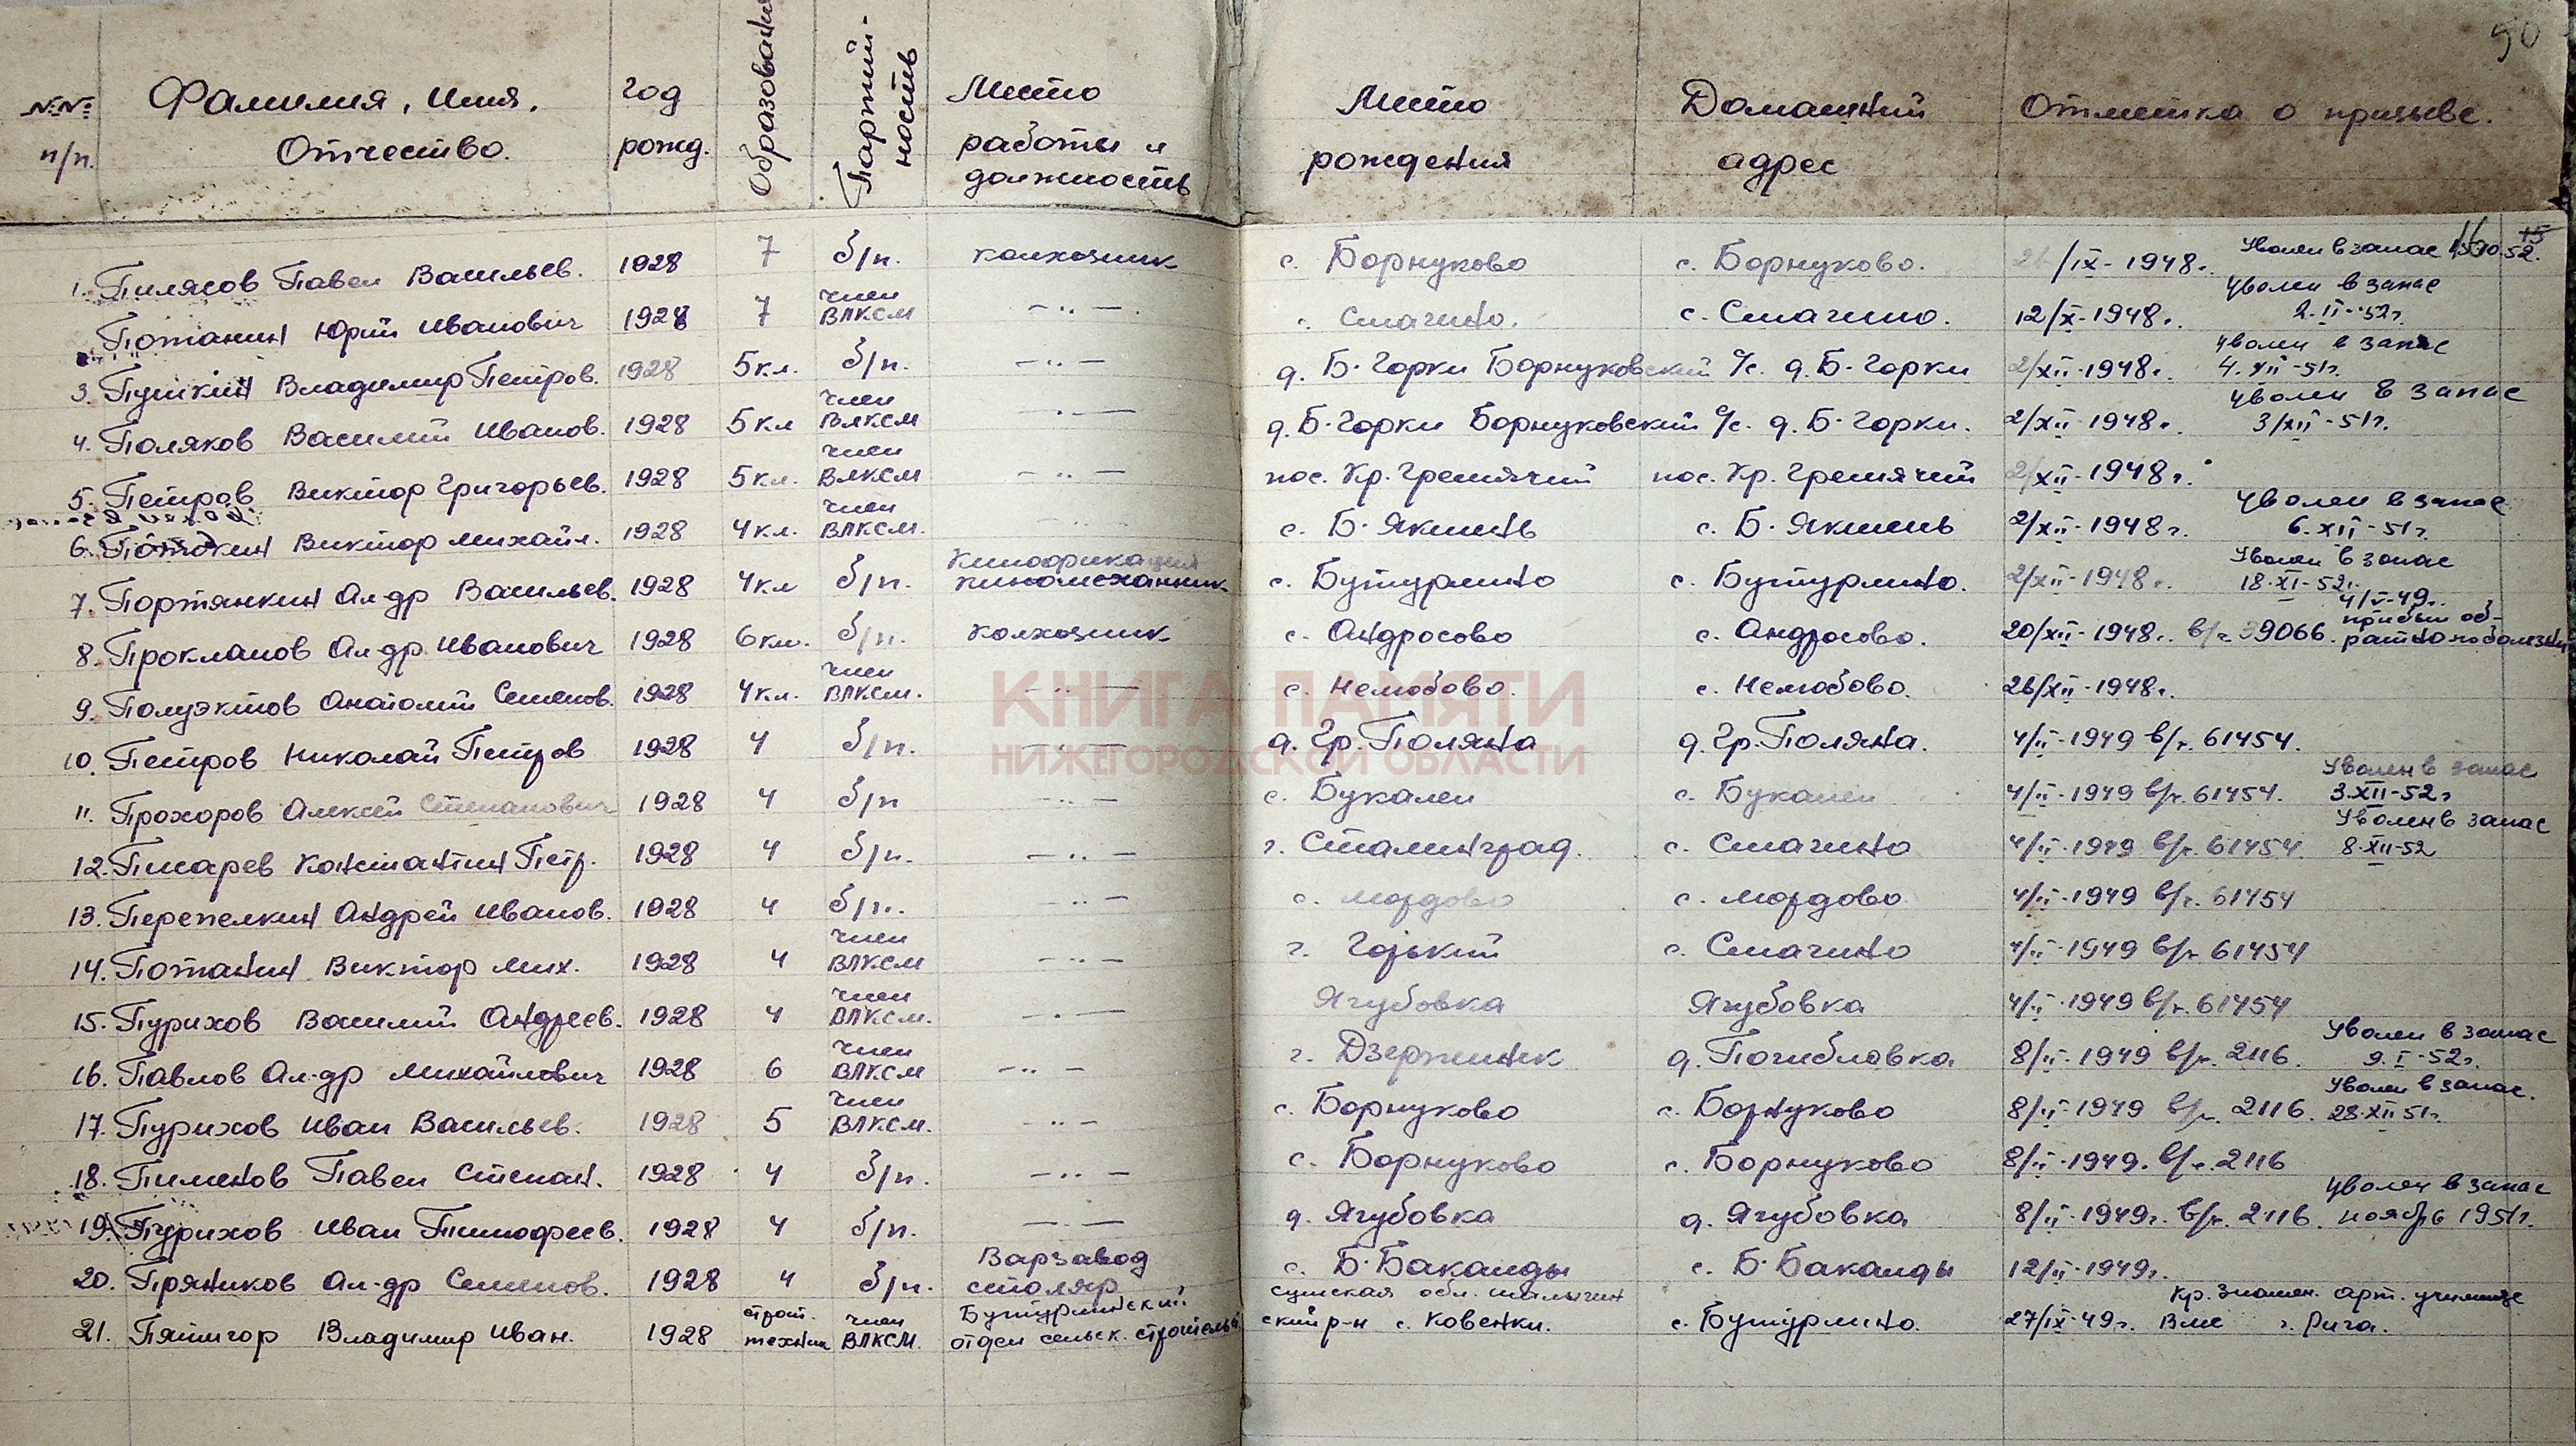 90
№№ п/п. Фамилия, Имя, Отчество. Год рожд. Образование Партийность Место работы и должность Место рождения Домашний адрес Отметка о призыве.
1. Пилясов Павел Васильев. 1928 7 б/п. колхозник с. Борнуково с. Борнуково. /IX-1948г. Уволен в запас 52.
Потанин Юрий Иванович 1928 7 член ВЛКСМ —··— с. Смагино. с. Смагино. 12/X-1948г. Уволен в запас 2-II-52г.
3. Пушкин Владимир Петров. 1928 5кл. б/п. —··— д. Б-Горки Борнуковский с/с. д. Б-Горки 2/XII-1948г. Уволен в запас 4.XII-51г.
4. Поляков Василий Иванов. 1928 5кл член ВЛКСМ —·— д. Б-Горки Борнуковский с/с. д. Б-Горки. 2/XII-1948г. Уволен в запас 3/XII-51г.
5. Петров Виктор Григорьев. 1928 5кл. член ВЛКСМ —··— пос. Кр. Гремячий пос. Кр. Гремячий 2/XII-1948г.
6. Потокин Виктор Михайл. 1928 4кл. член ВЛКСМ. —··— с. Б-Якшень с. Б-Якшень 2/XII-1948г. Уволен в запас 6.XII-51г.
7. Портянкин Ал-др Васильев. 1928 4кл б/п. Кинофикация киномеханник с. Бутурлино с. Бутурлино. 2/XII-1948г. Уволен в запас 18-XI-52г.
8. Прокланов Ал-др Иванович 1928 6кл. б/п. колхозник с. Андросово с. Андросово. 20/XII-1948г. в/ч 39066. 4/V-49г. прибыл обратно по болезни
9. Полуэктов Анатолий Семенов. 1928 4кл. член ВЛКСМ. —··— с. Нелюбово. с. Нелюбово. 26/XII-1948г.
КНИГА ПАМЯТИ
10. Петров Николай Петров 1928 4 б/п. —··— д. Гр. Поляна д. Гр. Поляна. 4/II-1949 в/ч. 61454.
НИЖЕГОРОДСКОЙ ОБЛАСТИ
11. Прохоров Алексей Степанович 1928 4 б/п —··— с. Букалеи с. Букалеи 4/II-1949 в/ч. 61454. Уволен в запас 3.XII-52г
12. Писарев Константин Петр. 1928 4 б/п. —··— г. Сталинград. с. Смагино 4/II-1949 в/ч. 61454 Уволен в запас 8-XII-52
13. Перепелкин Андрей Иванов. 1928 4 б/п. —··— с. Мордово с. Мордово 4/II-1949 в/ч. 61454
14. Потанин Виктор Мих. 1928 4 член ВЛКСМ —··— г. Горький с. Смагино 4/II-1949 в/ч 61454
15. Пурихов Василий Андреев. 1928 4 член ВЛКСМ. —·— Ягубовка Ягубовка 4/II-1949 в/ч. 61454
16. Павлов Ал-др Михайлович 1928 6 член ВЛКСМ —··— г. Дзержинск д. Погибловка 8/II-1949 в/ч. 2116. Уволен в запас 9.I-52г.
17. Пурихов Иван Васильев. 1928 5 член ВЛКСМ. —··— с. Борнуково с. Борнуково 8/II-1949 в/ч. 2116. Уволен в запас. 28-XII 51г.
18. Пименов Павел Степан. 1928 4 б/п. —··— с. Борнуково с. Борнуково 8/II-1949. в/ч. 2116
19. Пурихов Иван Тимофеев. 1928 4 б/п. —··— д. Ягубовка д. Ягубовка 8/II-1949г. в/ч. 2116. Уволен в запас ноябрь 1951г.
20. Пряников Ал-др Семенов. 1928 4 б/п. Варзавод столяр с. Б-Бакалды с. Б-Бакалды 12/II-1949г.
21. Пятигор Владимир Иван. 1928 строит. техник член ВЛКСМ. Бутурлинский отдел сельск. строительс. сумская обл. шалыгинский р-н с. Ковенки. с. Бутурлино. 27/IX-49г. Кр. Знамен. арт. училище г. Рига.